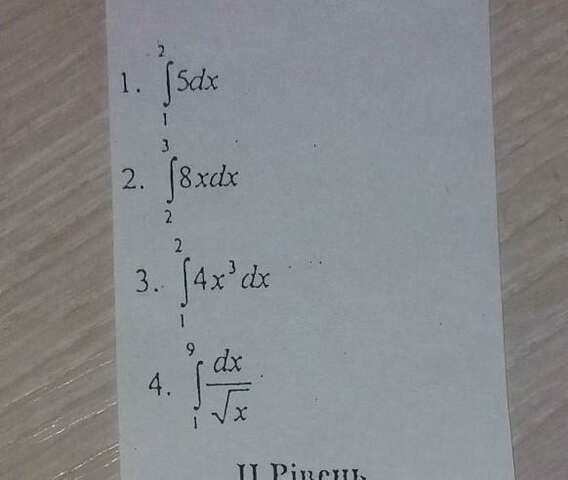 1. ∫₁² 5dx
2. ∫₂³ 8xdx
3. ∫₁² 4x³dx
4. ∫₁⁹ dx/√x
II Рівень